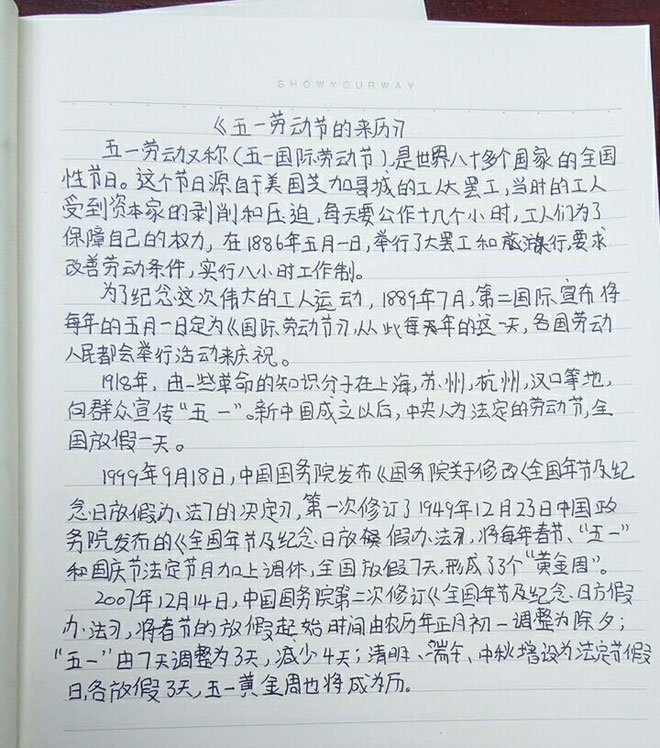 SHOWYOURWAY
《五一劳动节的来历》
五一劳动又称(五一国际劳动节),是世界八十多个国家的全国
性节日。这个节日源自于美国芝加哥城的工人大罢工,当时的工人
受到资本家的剥削和压迫,每天要公作十几个小时,工人们为了
保障自己的权力,在1886年五月一日,举行了大罢工和行,要求
改善劳动条件,实行八小时工作制。
为了纪念这次伟大的工人运动,1889年7月,第二国际宣布将
每年的五月一日定为《国际劳动节》,从此每年的这一天,各国劳动
人民都会举行活动来庆祝。
1918年,由一些革命的知识分子在上海,苏州,杭州,汉口等地,
向群众宣传“五一”。新中国成立以后,中央人为法定的劳动节,全
国放假一天。
1999年9月18日,中国国务院发布《国务院关于修改〈全国年节及纪
念日放假办法〉的决定》,第一次修订了1949年12月23日中国政
务院发布的《全国年节及纪念日放候假办法》,将每年春节、“五一”
和国庆节法定节日加上调休,全国放假7天,形成了3个“黄金周”。
2007年12月14日,中国国务院第二次修订《全国年节及纪念日方假
办法》,将春节的放假起始时间由农历年正月初一调整为除夕;
“五一”由7天调整为3天,减少4天;清明、端午、中秋增设为法定节假
日,各放假3天,五一黄金周也将成为历。